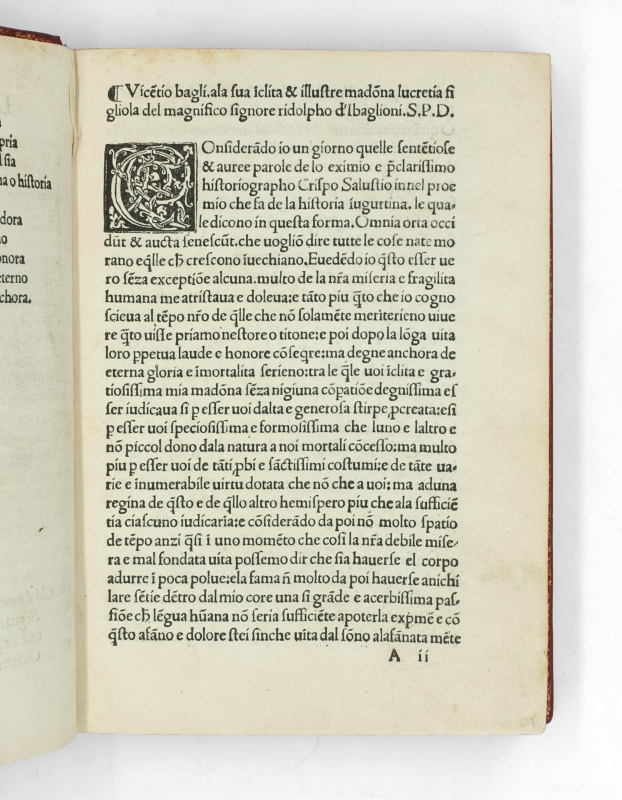 pria
sia
na o historia
dora
no
onora
eterno
chora.
¶ Vicẽtio bagli.ala sua ĩclita & illustre madõna lucretia fi
gliola del magnifico signore ridolpho d'Ibaglioni.S.P.D.
COnsiderãdo io un'giorno quelle sentẽtiose
& auree parole de lo eximio e p̃clarissimo
historiographo Crispo Salustio innel proe
mio che fa de la historia iugurtina. le qua-
le dicono in questa forma. Omnia orta occi
dũt & aucta senescũt.che uogliõ dire tutte le cose nate mo
rano eq̃lle ch̃ crescono iuecchiano.Euedẽdo io q̃sto esser ue
ro sẽza exceptiõe alcuna.multo de la nr̃a miseria e fragilita
humana me atristaua e doleua:e tãto piu q̃to che io cogno
sceua al tẽpo nr̃o de q̃lle che nõ solamẽte meriterieno uiue
re q̃to uisse priamo nestore o titone:e poi dopo la lõga uita
loro ꝑpetua laude e honore cõseq̃re:ma degne anchora de
eterna gloria e ĩmortalita serieno:tra le q̃le uoi ĩclita e gra-
tiosissima mia madõna sẽza nigiuna cõpatiõe degnissima es
ser iudicaua si ꝑ esser uoi dalta e generosa stirpe,ꝓcreata:esi
ꝑ esser uoi speciosissima e formosissima che luno e laltro e
nõ piccol dono dala natura a noi mortali cõcesso:ma multo
piu ꝑ esser uoi de tãti,ꝓbi e sãctissimi costumi:e de tãte ua-
rie e ĩnumerabile uirtu dotata che nõ che a uoi:ma aduna
regina de q̃sto e de q̃llo altro hemispero piu che ala sufficiẽ
tia ciascuno iudicaria:e cõsiderãdo da poi nõ molto spatio
de tẽpo anzi q̃si ĩ uno momẽto che così la nr̃a debile mise-
ra e mal fondata uita possemo dir che sia hauerse el corpo
adurre ĩ poca polue:ela fama ñ molto da poi hauerse anichi
lare sẽtie dẽtro dal mio core una si grãde e acerbissima pas-
siõe ch̃ lẽgua hũana nõ seria sufficiẽte apoterla exp̃me e cõ
q̃sto afãno e dolore stei sinche uita dal sõno alafãnata mẽte
A ii